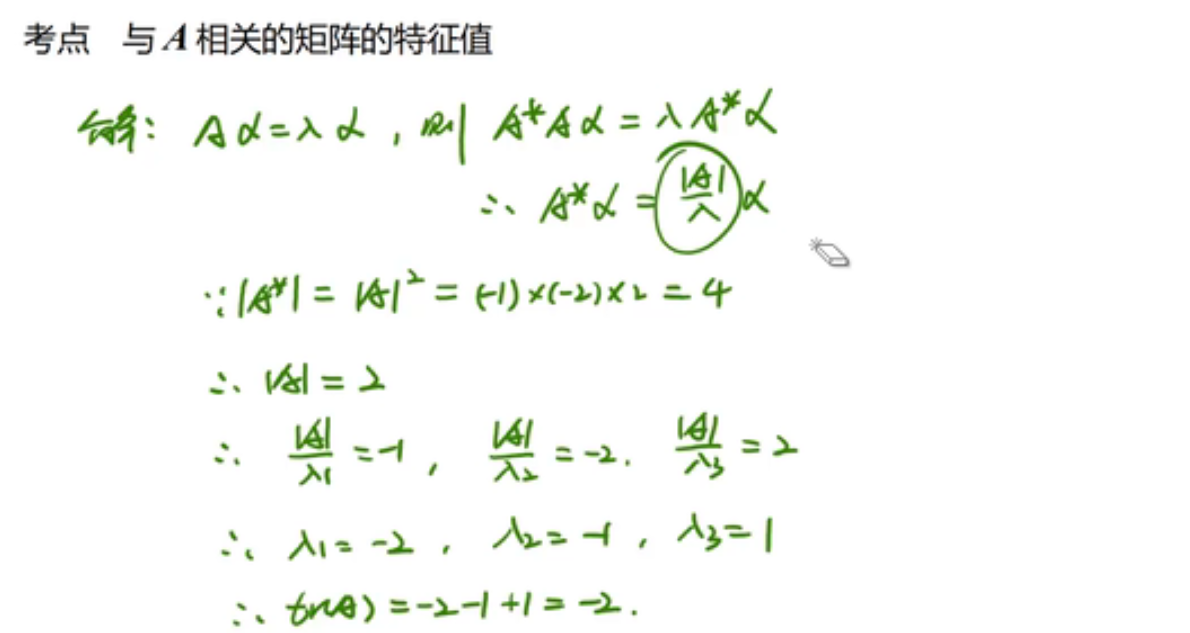 考点 与 A 相关的矩阵的特征值
解: Aα=λα, 则 A*Aα=λA*α
∴ A*α=|A|/λ α
∵|A*|=|A|²=(-1)×(-2)×2=4
∴ |A|=2
∴ |A|/λ1=-1, |A|/λ2=-2. |A|/λ3=2
∴ λ1=-2, λ2=-1, λ3=1
∴ tr(A)=-2-1+1=-2.